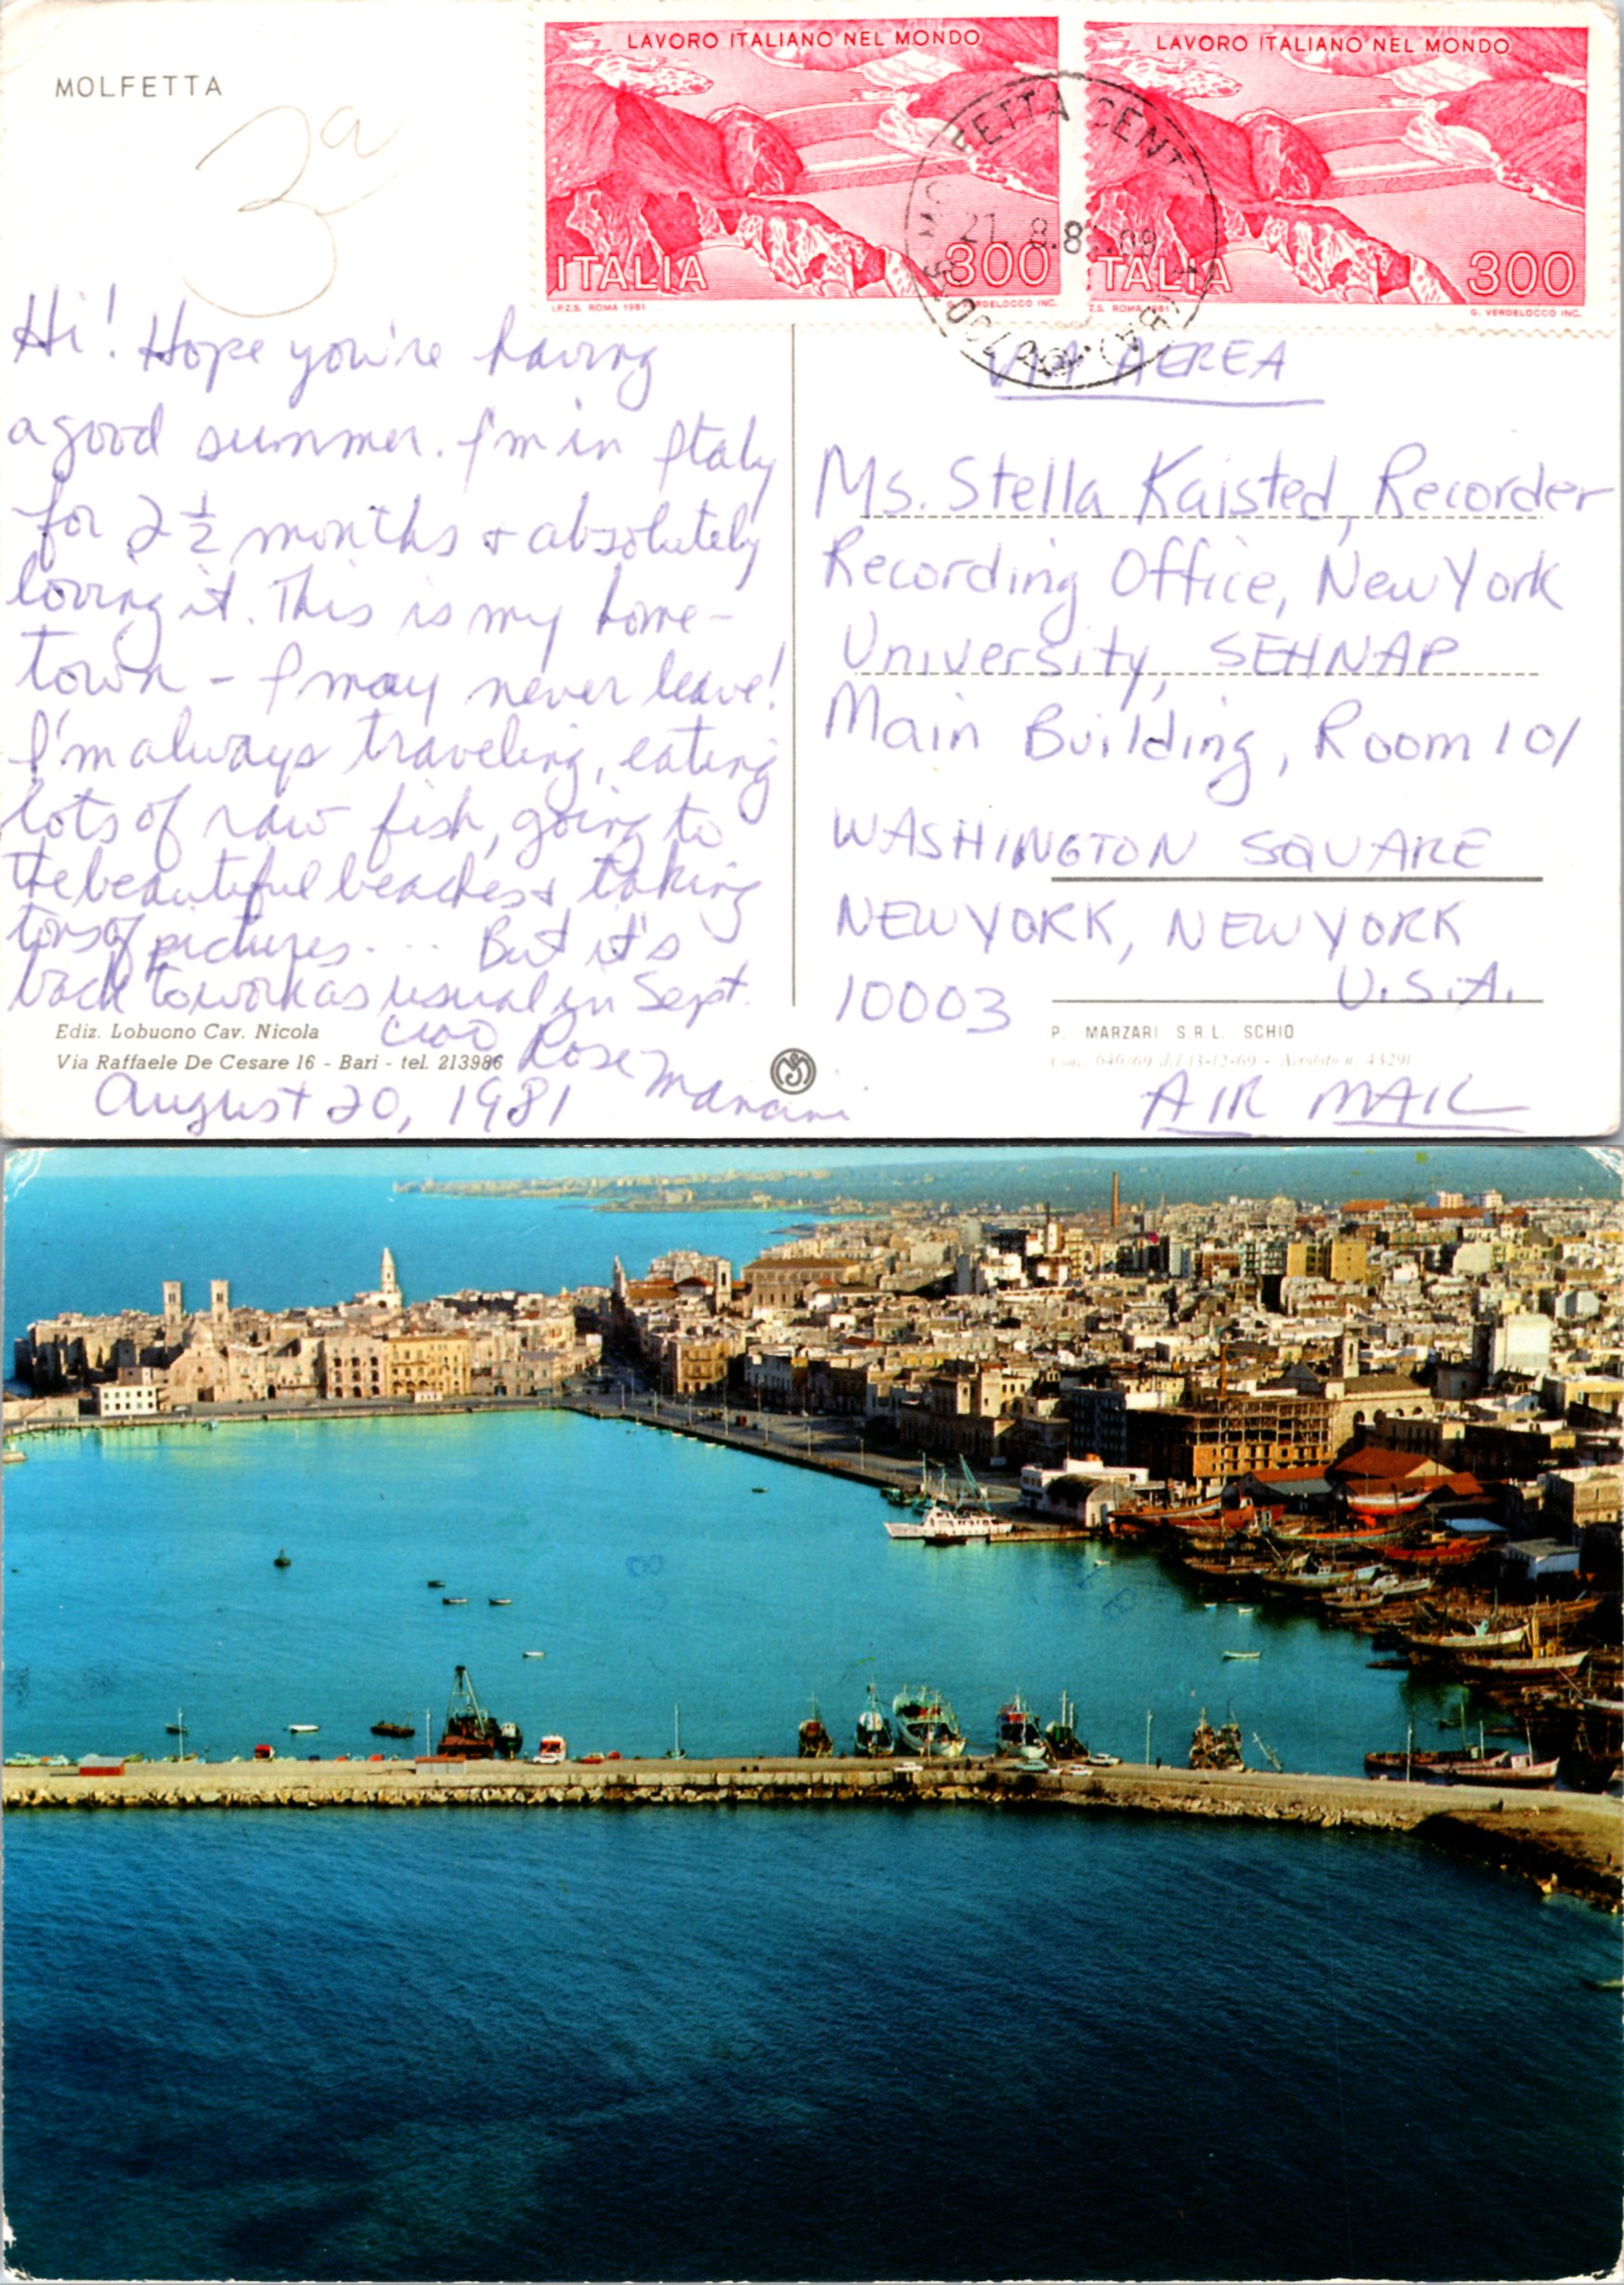 MOLFETTA
3a
LAVORO ITALIANO NEL MONDO
ITALIA 300
I.P.Z.S. ROMA 1981 G. VERDELOCCO INC.
LAVORO ITALIANO NEL MONDO
ITALIA 300
I.P.Z.S. ROMA 1981 G. VERDELOCCO INC.
MOLFETTA CENT
21.8.8
Hi! Hope you're having
a good summer. I'm in Italy
for 2 1/2 months & absolutely
loving it. This is my home-
town - I may never leave!
I'm always traveling, eating
lots of raw fish, going to
the beautiful beaches & taking
tons of pictures... But it's
back to work as usual in Sept.
Ciao Rose Mancini
August 20, 1981
VIA AEREA
Ms. Stella Kaisted, Recorder
Recording Office, New York
University, SEHNAP
Main Building, Room 101
WASHINGTON SQUARE
NEW YORK, NEW YORK
10003 U.S.A.
AIR MAIL
Ediz. Lobuono Cav. Nicola
Via Raffaele De Cesare 16 - Bari - tel. 213986
P. MARZARI S.R.L. SCHIO
Conc. 646/69 del 13-12-69 - Aerofoto n. 43291